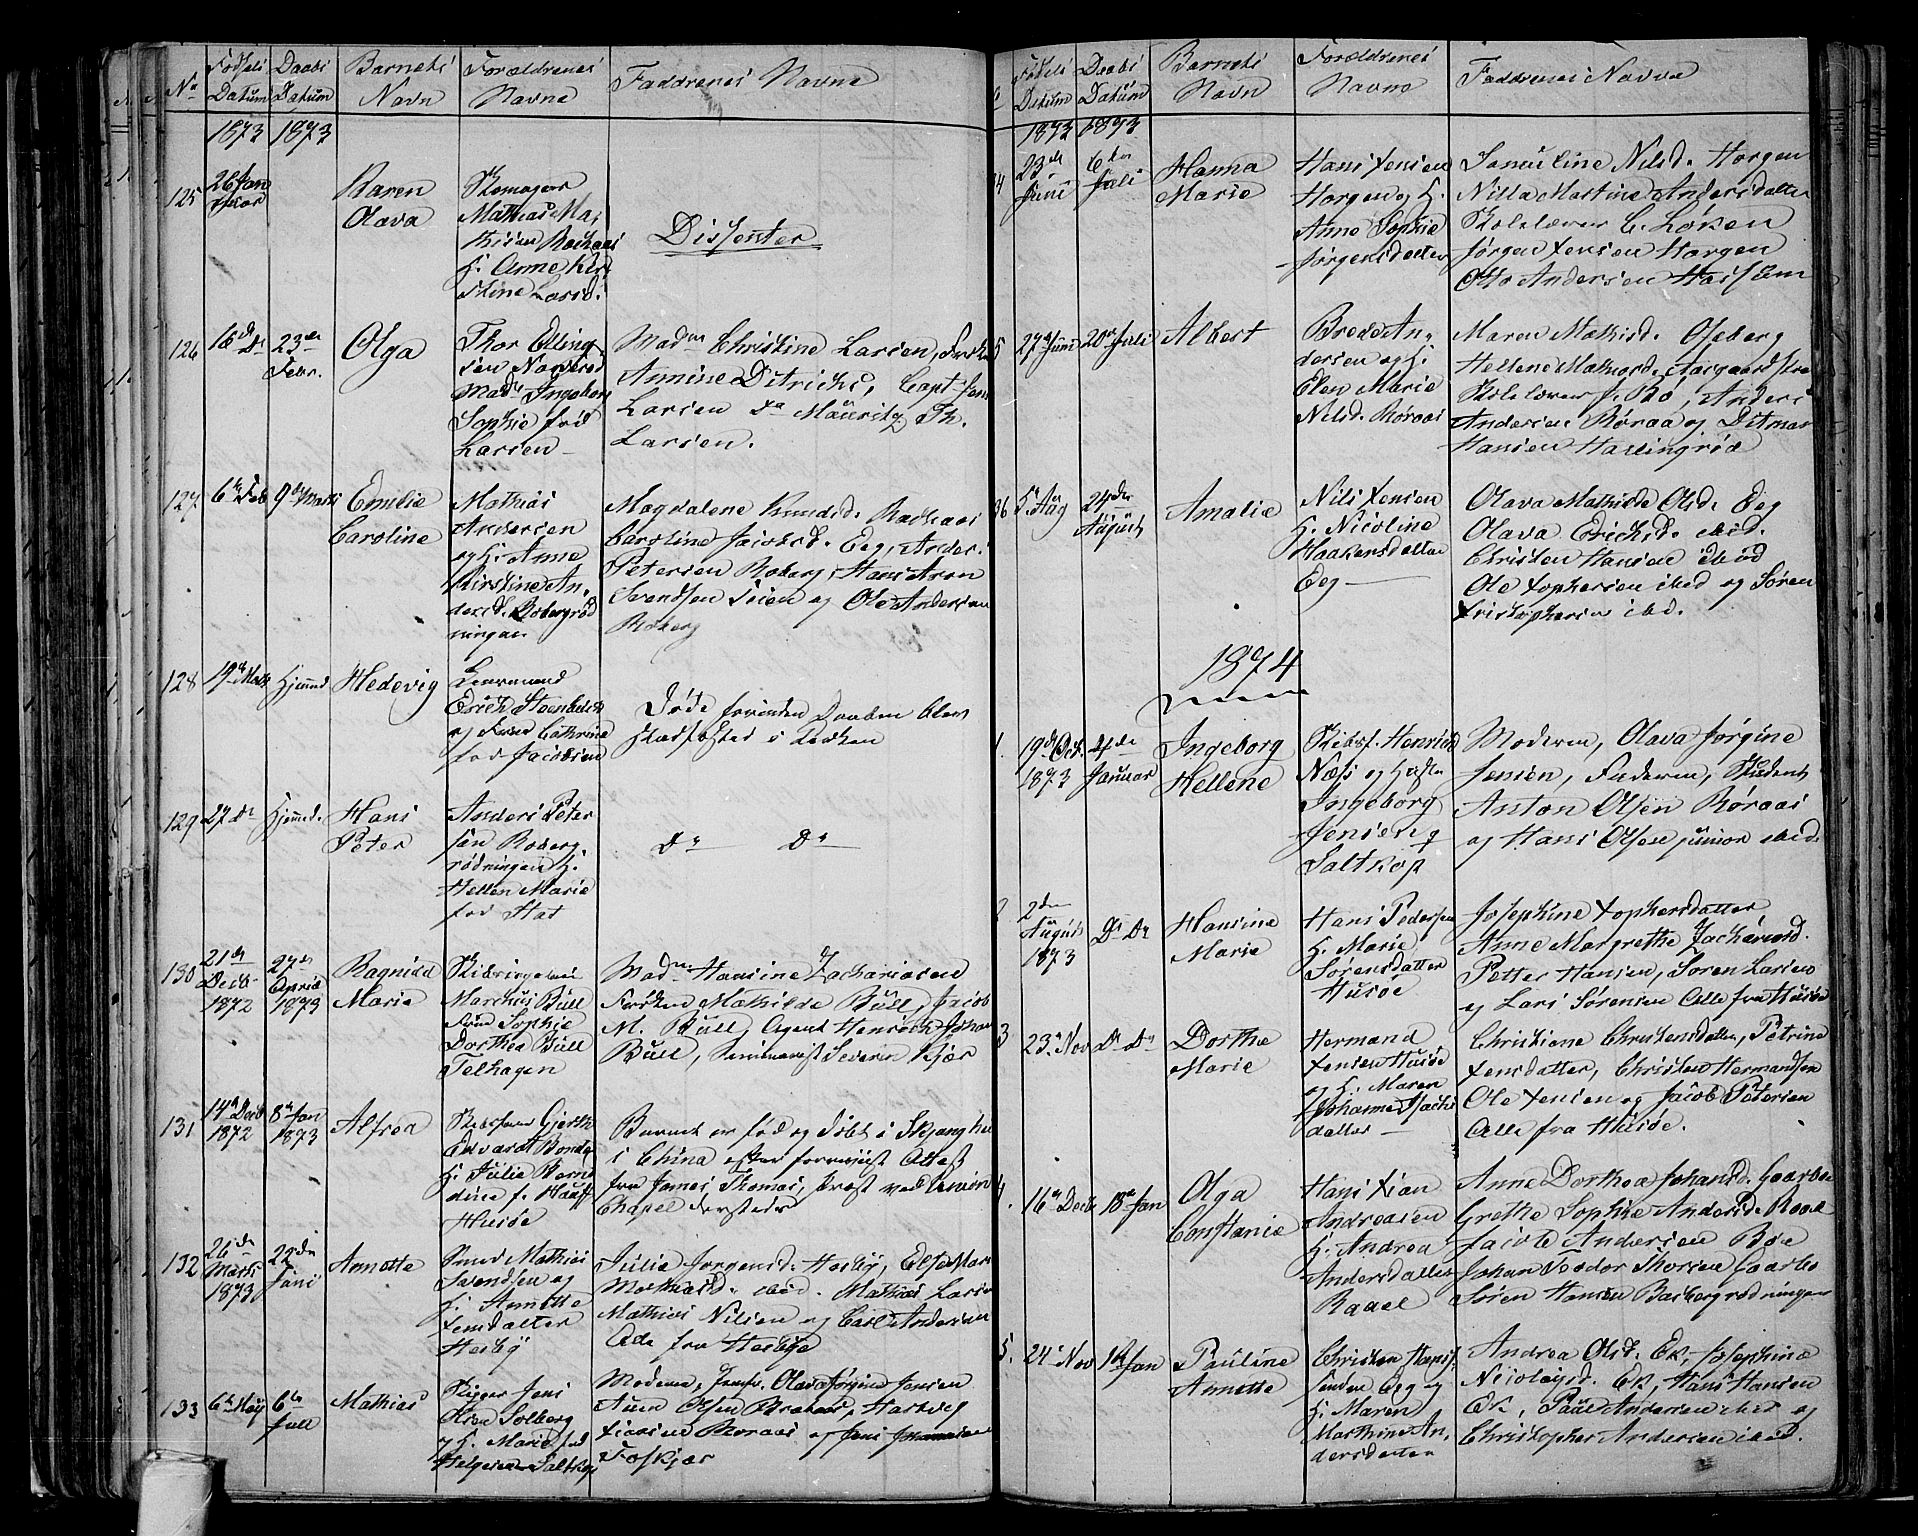 No
Fødsels Datum
Daabs Datum
Barnets Navn
Forældrenes Navne
Faddrenes Navne
1873 1873
125
26 Jan
Karen
Olava
Skomager
Mathias Ma
thisen
H. Anne Kir
stine Larsd.
Dissenter
126
16de Do
23de
Febr.
Olga
Thor Elling
sen
Madm Ingeborg
Sophie fød
Larsen
Madm Christine Larsen, Frøk
Annine Ditrichs, Capt. Jens
Larsen Do Mauritz Th.
Larsen.
127
6te Feb
9de Marts
Emilie
Caroline
Mathias
Andersen
og H. Anne
Kirstine An
dersd. Robergrød
ningen
Magdalene Knudsd.
Caroline Jacobsd. Eeg, Anders
Petersen Roberg, Hans Aron
Svendsen og Ole Andersen
Roberg
128
19de Marts
Hjemmed
Hedevig
Erich Steenbeck
og Frue Cathrine
fød Jacobsen
Døde forinden Daaben blev
stadfæsted i Kirken
129
27 Do
Hjemmed.
Hans
Peter
Anders Peter
sen Roberg
rødningen H.
Hellen Marie
fød Stat
Do Do
130
21de
Decb.
1872
27de
April
1873
Ragnild
Marie
Marchus Büll
Frue Sophie
Dorthea Büll
Telhagen
Madm Hansine Zachariasen
Frøken Mathilde Büll, Jacob
M. Büll, Agent Henrich Johan
Büll, Seminarist Severin Kjær
131
14de Decb
1872
8de Jan
1873
Alfred
Skibsfører Gjerth
Edvardt Bonde
H. Julie Bern
dine f. Hauff
Husøe
Barnet er fød og døbt i Skjanghei
i China efter foreviist Attest
fra James Thomas, Præst ved Union
Chapel dersteds
132
26de
Marts
1873
22de
Juni
Annette
Knud Mathias
Svendsen og
H. Annette
Jensdatter
Hesby
Julie Jørgensd. Hesby, Elise Mar
Mathiasd. ibid. Mathias Larsen
Mathias Nilsen og Carl Andersen
Alle fra Hesbye
133
6te Maj
6te
Juli
Mathias
Skipper Jens
Olsen Solberg
og H. Marie fød
Helgesen Saltkop
Moderen, Jomfr. Olava Jørgine Jensen
Hartvig
Xiansen Røraas og Jens Johannesen
Foskjær
Fødsels Datum
Daabs Datum
Barnets Navn
Forældrenes Navne
Faddrenes Navne
1873 1873
4
23de
Juni
6te
Juli
Hanna
Marie
Hans Jensen
Horgen og H.
Anne Sophie
Jørgensdatter
Samuline Nilsd. Horgen
Nilla Martine Andersdatter
Skolelærer C. Løken
Jørgen Jensen Horgen
Otto Andersen
5
27de Juni
20de Juli
Albert
Brede An
dersen og H.
Elen Marie
Nilsd. Røraas
Maren Mathisd. Oseberg
Hellene Mathisd. Aasgaardstran
Skolelærer J. Bø, Anders
Andersen Røraas og Ditmar
Hansen Haslingrød
36
5te Aug
24de
August
Amalie
Nils Jensen
H. Nicoline
Haakensdatter
Eeg
Olava Mathilde Olsd. Eeg
Olava Erichsd. ibid.
Christen Hansen ibid
Ole Xophersen ibid og Søren
Kristophersen ibid.
1874
1.
19de Oct.
1873
4de
Januar
Ingeborg
Hellene
Skibsf. Henrich
Næss og Hustru
Ingeborg
Jensen
Saltkop
Moderen, Olava Jørgine
Jensen, Faderen, Student
Anton Olsen Røraas
og Hans Olsen junior ibid.
2
2den
August
1873
Do Do
Hansine
Marie
Hans Pedersen
H. Marie
Sørensdatter
Husøe
Josephine Xophersdatter
Anne Margrethe Zachariasd.
Petter Hansen, Søren Larsen
og Lars Sørensen Alle fra Husøe
3
23de Nov
Do Do
Dorthe
Marie
Hermand
Jensen Husøe
og H. Maren
Johanne Isachs
datter
Christiane Christensdatter, Petrine
Jensdatter, Christen Hermandsen
Ole Jensen og Jacob Petersen
Alle fra Husøe.
4.
16de Decb
18de Jan
Olga
Constance
Hans Xian
Andreasen
H. Andrea
Andersdatter
Rael
Anne Dorthea Johansd. Gaarbo
Grethe Sophie Andersd. Rael
Jacob Andersen Bøe
Johan Teodor Thorsen Gaarbo
Søren Hansen Basbergrødningen
5.
24de Nov
18de Jan
Pauline
Annette
Christen Hans
senden Eeg og
H. Maren
Marthine An
dersdatter
Andrea Olsd. Ek, Josephine
Nicolaysd. Ek, Hans Hansen
Ek, Paul Andersen ibid og
Christopher Andersen ibid.